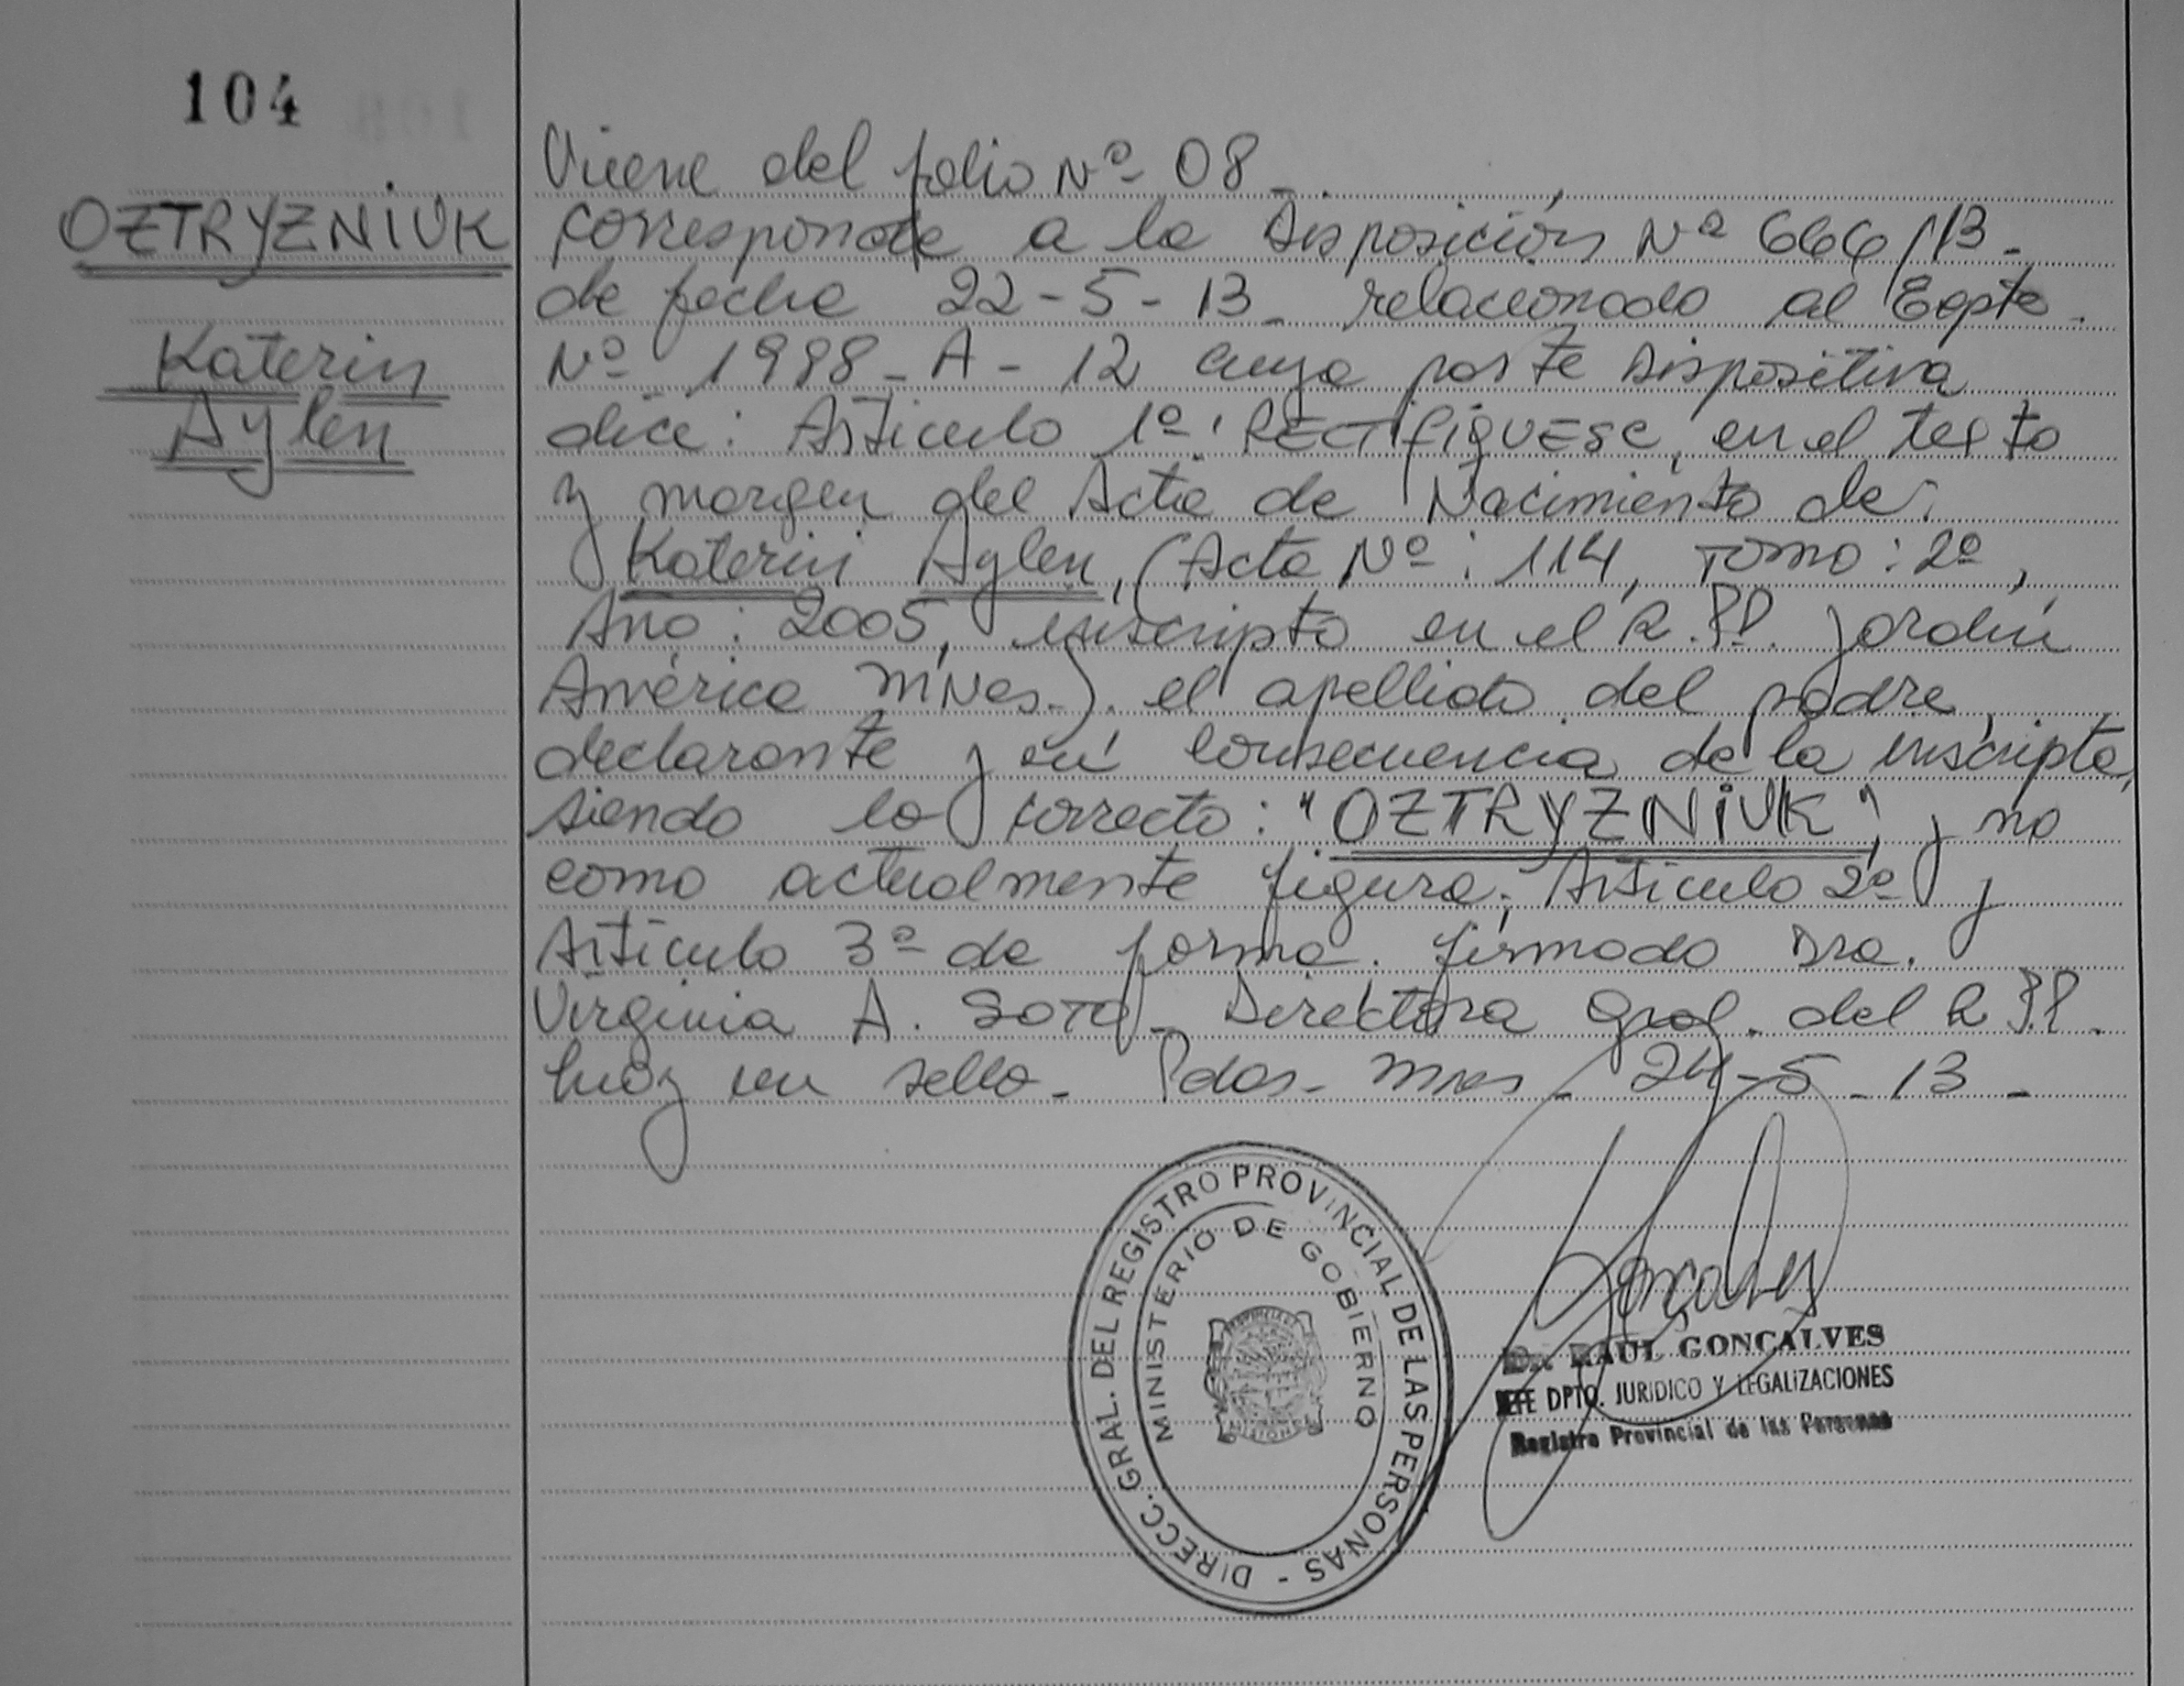 104
OZTRYZNIUK
Katerin
Aylen
Viene del folio Nº 08_.
corresponde a la Disposición Nº 666/13_
de fecha 22-5-13_ relacionado al Expte.
Nº 1998_A-12 cuya parte Dispositiva
dice: Artículo 1º: RECTIFIQUESE, en el texto
y margen del Acta de Nacimiento de:
Katerin Aylen, (Acta Nº: 114, Tomo: 2º,
Año: 2005, inscripta en el R.P.P. Jardín
América Mnes_). el apellido del padre,
declarante y en consecuencia de la inscripta,
siendo lo correcto: "OZTRYZNIUK", y no
como actualmente figura; Artículo 2º y
Artículo 3º de forma. firmado Dra.
Virginia A. Soto_ Directora Gral. del R.P.P.
hay un sello_ Pdas_ Mnes_ 24-5_13_
DIRECC. GRAL. DEL REGISTRO PROVINCIAL DE LAS PERSONAS -
MINISTERIO DE GOBIERNO
Dr. RAUL GONCALVES
JEFE DPTO. JURIDICO Y LEGALIZACIONES
Registro Provincial de las Personas